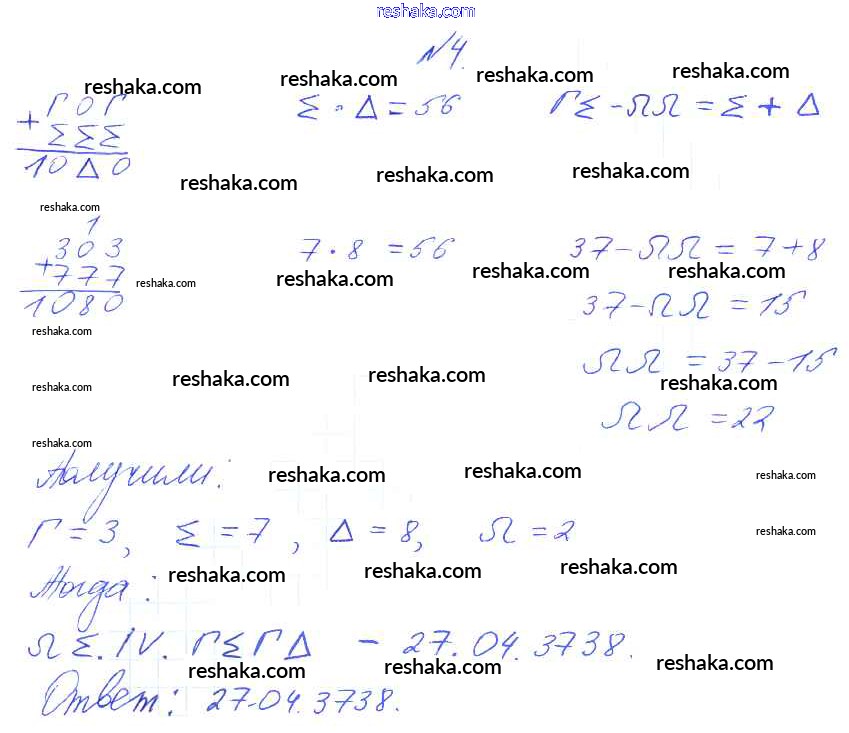 reshaka.com
№4.
reshaka.com reshaka.com reshaka.com reshaka.com
Г0Г Σ · Δ = 56 ГΣ - ΩΩ = Σ + Δ
+ ΣΣΣ
10Δ0
reshaka.com reshaka.com reshaka.com
reshaka.com
1
303 7 · 8 = 56 37 - ΩΩ = 7 + 8
+777 reshaka.com reshaka.com reshaka.com reshaka.com
1080 37 - ΩΩ = 15
reshaka.com
ΩΩ = 37 - 15
reshaka.com reshaka.com reshaka.com reshaka.com
ΩΩ = 22
reshaka.com
Получили: reshaka.com reshaka.com reshaka.com
Г = 3, Σ = 7, Δ = 8, Ω = 2 reshaka.com
Тогда: reshaka.com reshaka.com reshaka.com
ΩΣ.IV.ГΣГΔ - 27.04.3738.
reshaka.com reshaka.com reshaka.com
Ответ: 27.04.3738.